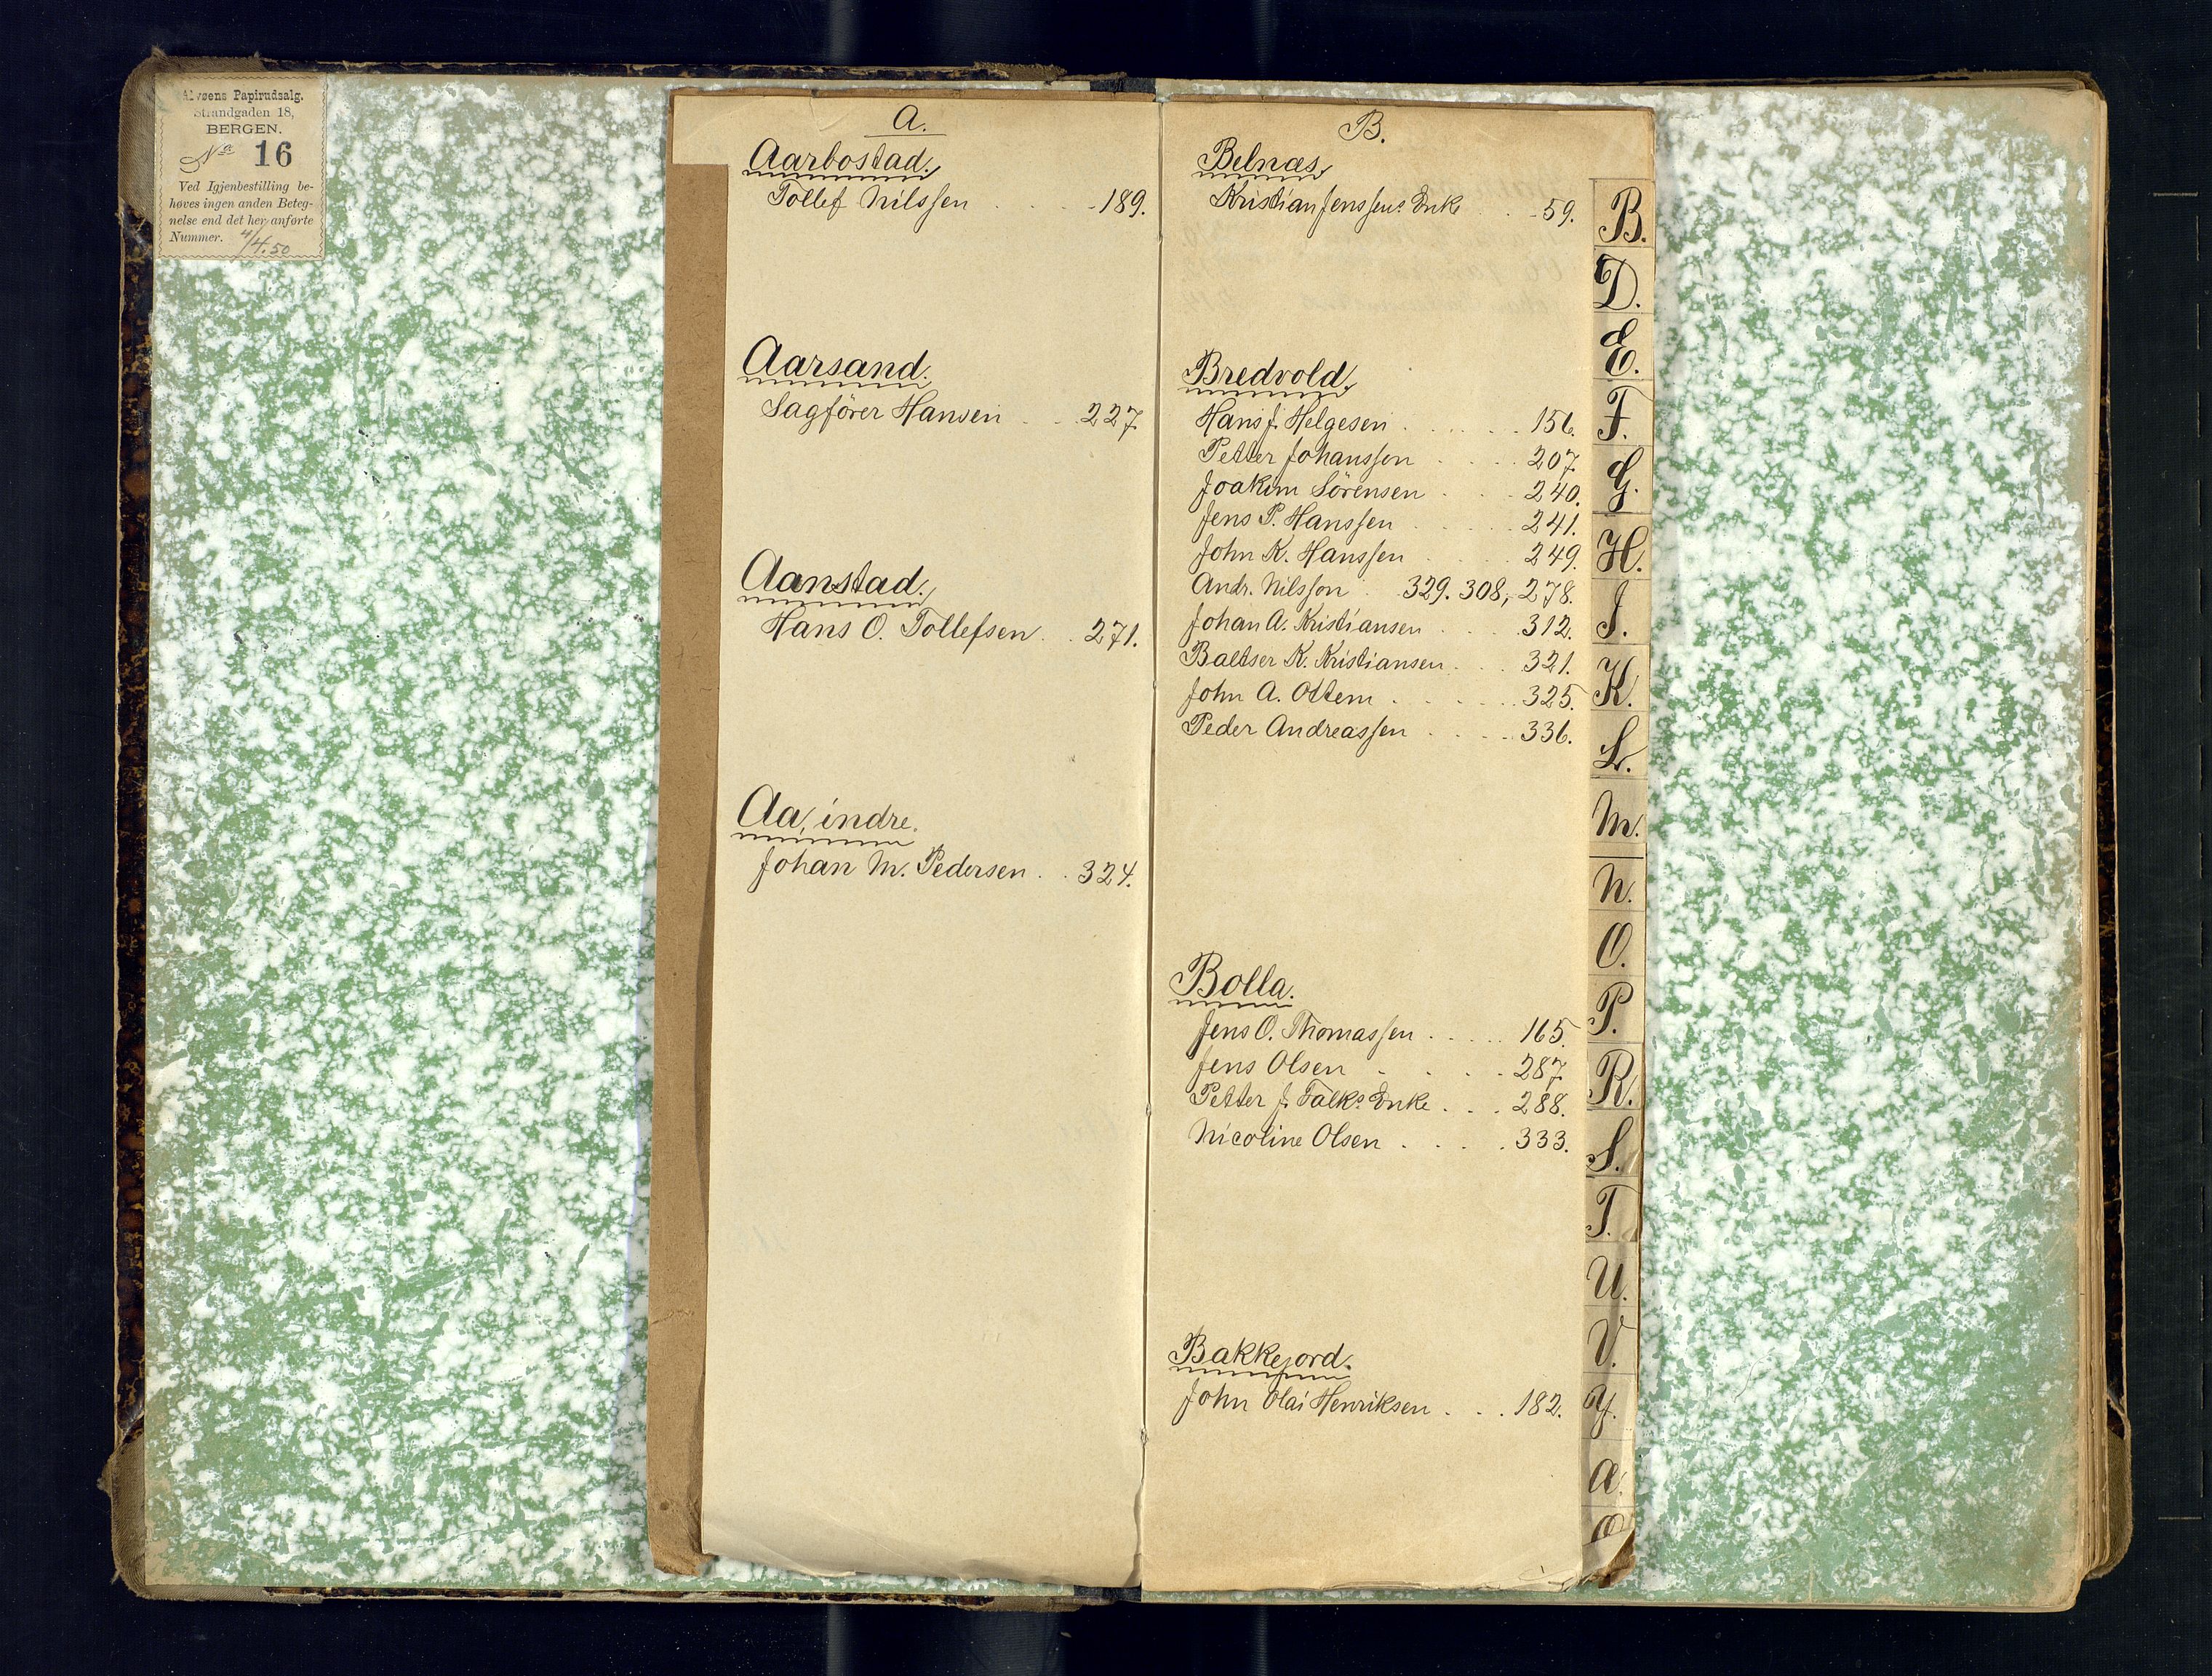 Alvøens Papirudsalg.
Strandgaden 18,
BERGEN.
No 16
Ved Igjenbestilling be-
høves ingen anden Beteg-
nelse end det her anførte
Nummer. 4/4.50
A.
Aarbostad.
Tollef Nilssen . . . . 189.
Aarsand.
Sagförer Hansen . . . 227
Aanstad.
Hans O. Tollefsen . . 271.
Aa, indre.
Johan M. Pedersen . . 324.
B.
Belnæs
Kristian Jenssens Enke . . 59.
Bredvold.
Hans J. Helgesen . . . . . . 156.
Petter Johanssen . . . . 207.
Joakim Sörensen . . . 240.
Jens P. Hanssen . . . . . 241.
John K. Hanssen . . . . 249.
Andr. Nilsson . . 329. 308, 278.
Johan A. Kristiansen . . . . 312.
Baltser K. Kristiansen . . . 321.
John A. Ottem . . . . . . 325.
Peder Andreassen . . . . 336.
Bolla.
Jens O. Thomassen . . . . . 165.
Jens Olsen . . . . . 287.
Petter J. Falks Enke . . . 288.
Nicoline Olsen . . . . . 333.
Bakkejord.
John Olai Henriksen . . . 182.
B.
D.
E.
F.
G.
H.
J.
K.
L.
M.
N.
O.
P.
R.
S.
T.
U.
V.
Y.